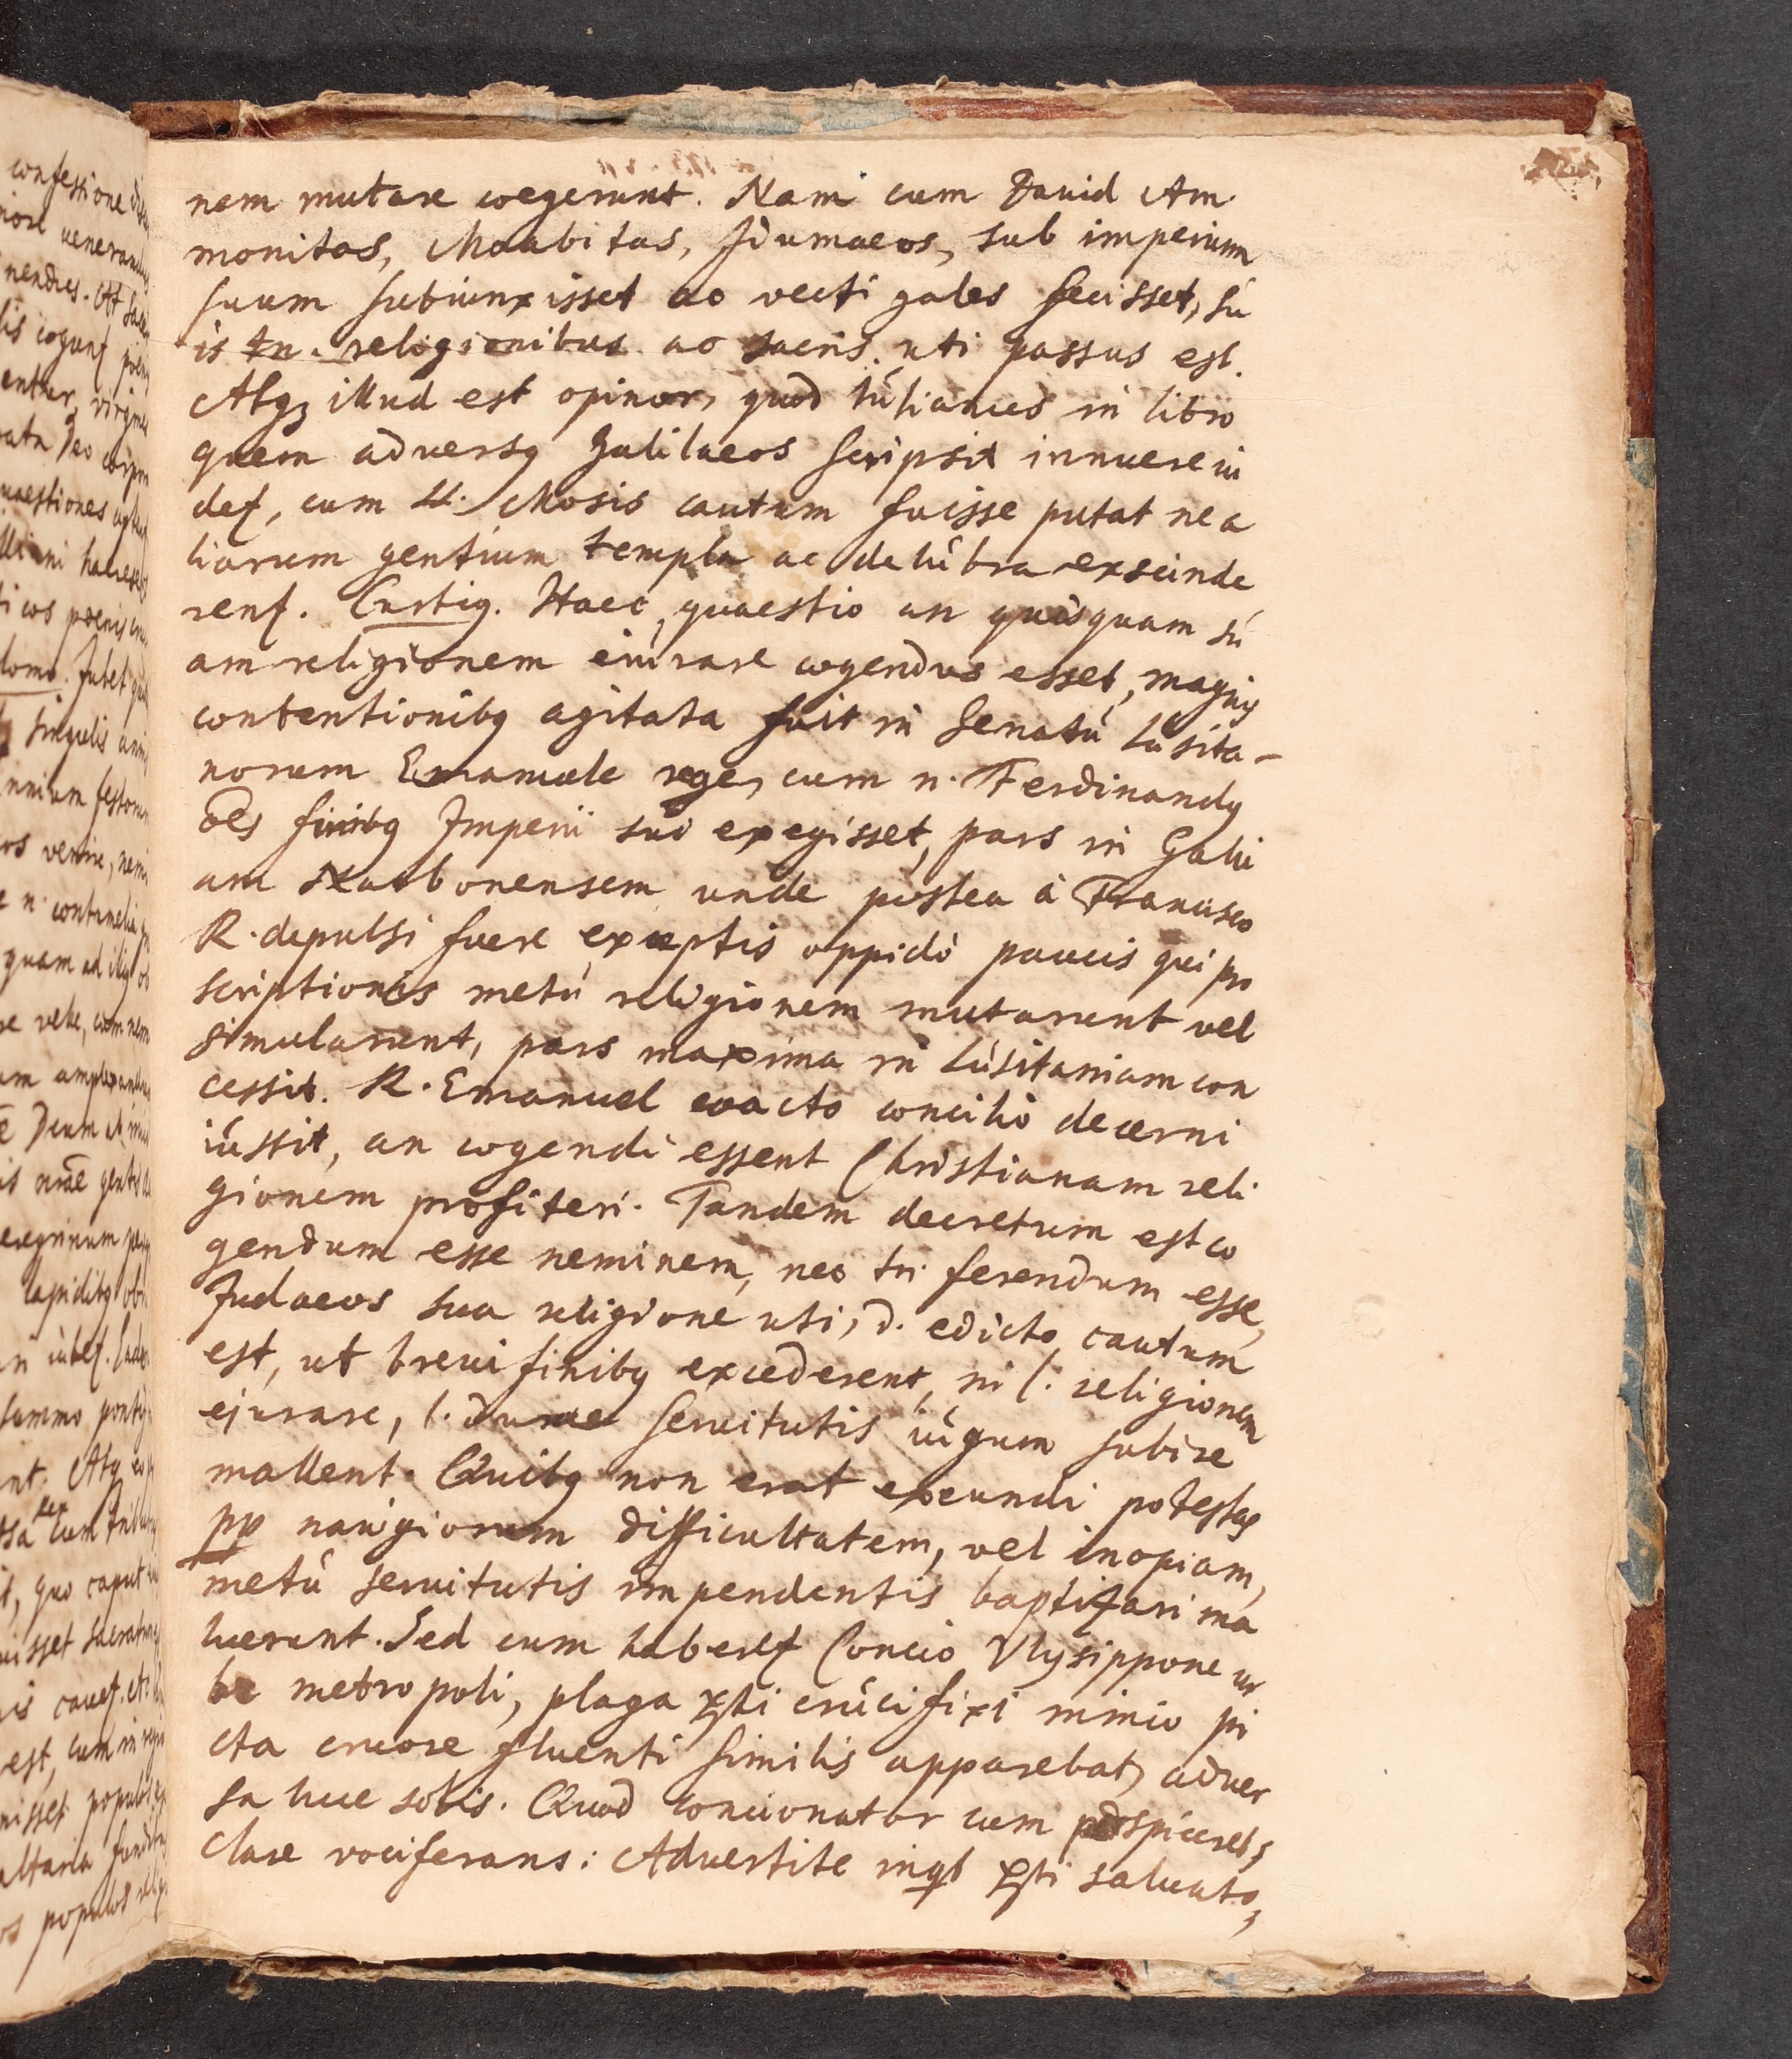 nem mutare coegerunt. Nam cum Dauid Am
monitas, Moabitas, Idumaeos, sub imperium
suum subiunxisset ac vectigales fecisset, sú
is tn. religionibus ac sacris uti passus est.
Atqз illud est opinor, quod Iúlianus in libro
quem adversꝯ Galilaeos scripsit innuere ui
detʳ, cum ll. Mosis cautum fuisse putat ne a
liarum gentium templa ac delúbra exscinde
rentʳ. Curtiꝯ. Haec quaestio an quisquam sú
am religionem eiúrare cogendus esset, magnis
contentionibꝯ agitata fuit in Senatú Lusita-
norum Emanuele rege, cum n. Ferdinandꝯ
oẽs finibꝯ Imperii sui exegisset, pars in Galli
am Narbonensem unde postea à Francisco
R. depulsi fuere exceptis oppidò paucis qui pro
scriptionis metú religionem mutarunt vel
simularunt, pars maxima in Lúsitaniam con
cessit. R. Emanuel coacto concilio decerni
iússit, an cogendi essent Christianam reli
gionem profiteri. Tandem decretum est co
gendum esse neminem, nec tn. ferendum esse,
Judaeos sua religione uti, d. edicto cautum
est, ut brevi finibꝯ excederent, ni l. religionem
ejurare, l. durae servitutis iúgum subire
mallent. Quibꝯ non erat exeundi potestas
pp navigiorum difficultatem, vel inopiam,
metú servitutis impendentis baptizari ma
luerunt. Sed cum haberetʳ Concio Vlysippone ur
be metropoli, plaga xp̃i crúcifixi minio pi
cta cruore fluenti similis apparebat, adver
sa luce solis. Quod concionator cum prospiceret,
clare vociferans: Advertite inqt xp̃i